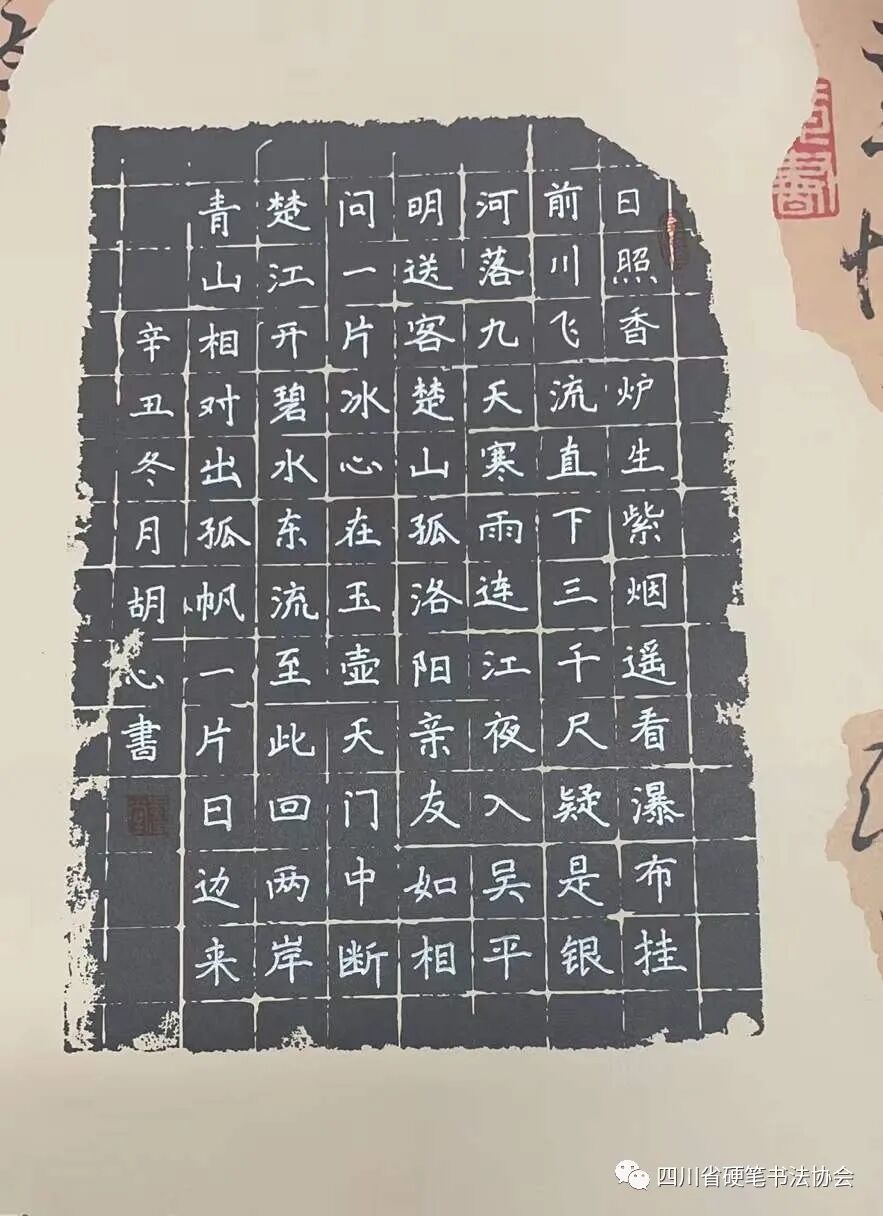 日照香炉生紫烟遥看瀑布挂
前川飞流直下三千尺疑是银
河落九天寒雨连江夜入吴平
明送客楚山孤洛阳亲友如相
问一片冰心在玉壶天门中断
楚江开碧水东流至此回两岸
青山相对出孤帆一片日边来
辛丑冬月胡心書
四川省硬笔书法协会